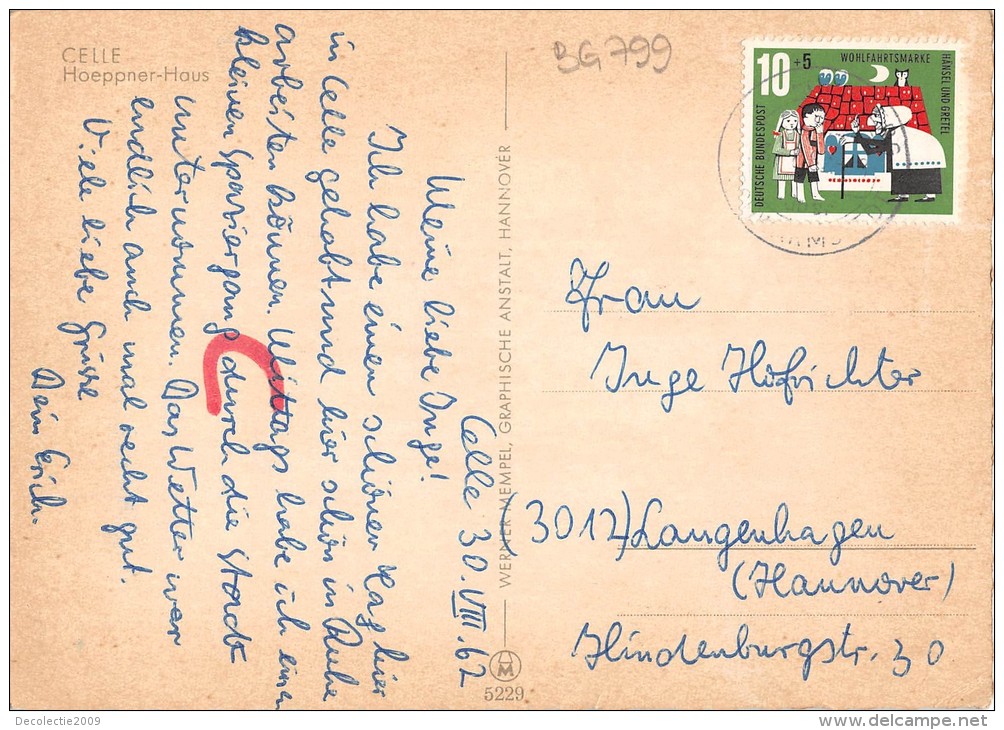 CELLE
Hoeppner-Haus
Celle 30.VIII.62
Meine liebe Inge!
Ich habe einen schönen Tag hier
in Celle gehabt und hier schön in Ruhe
arbeiten können. Mittags habe ich einen
kleinen Spaziergang durch die Stadt
unternommen. Das Wetter war
endlich auch mal recht gut.
Viele liebe Grüsse
Dein Erich.
WERNER MEMPEL, GRAPHISCHE ANSTALT, HANNOVER
M
5229
BG799
10+5
WOHLFAHRTSMARKE
HÄNSEL UND GRETEL
DEUTSCHE BUNDESPOST
Frau
Inge Hofrichter
(3012) Langenhagen
(Hannover)
Hindenburgstr. 30
Decolectie2009
www.delcampe.net